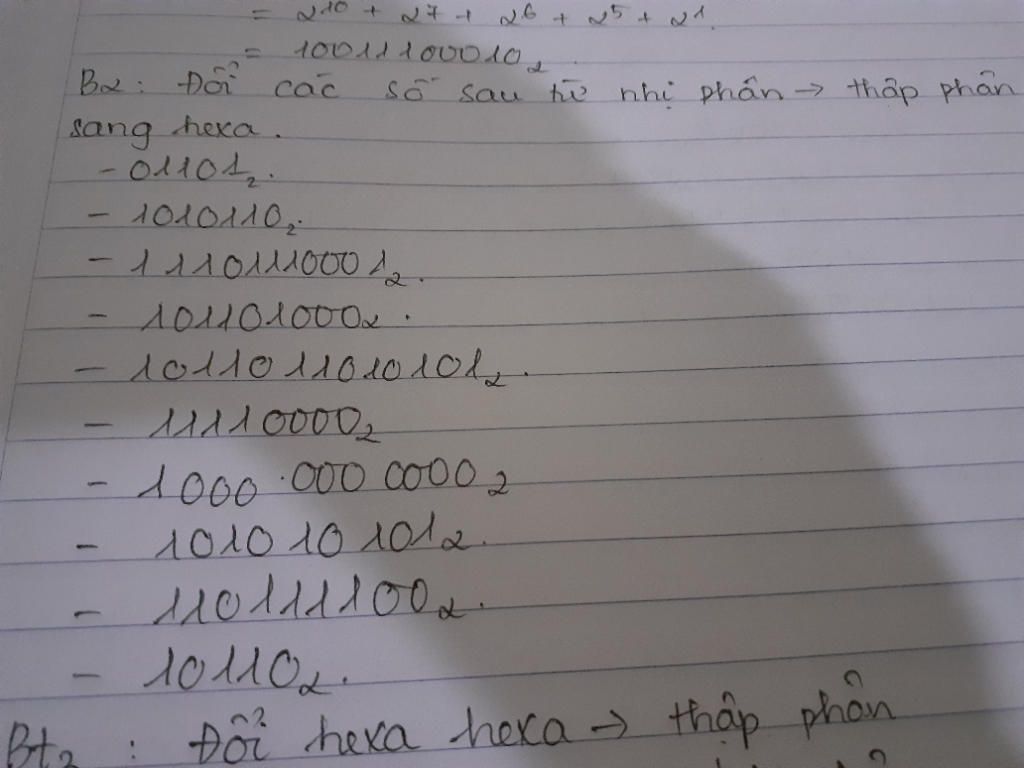 = 2¹⁰ + 2⁷ + 2⁶ + 2⁵ + 2¹.
= 10011100010₂.
B2 : Đổi các số sau từ nhị phân → thập phân
sang hexa.
- 01101₂.
- 1010110₂.
- 11101110001₂.
- 101101000₂.
- 1011011010101₂.
- 11110000₂
- 1000 000 0000₂
- 1010 10 101₂.
- 110111100₂.
- 10110₂.
Bt2 : Đổi hexa hexa → thập phân